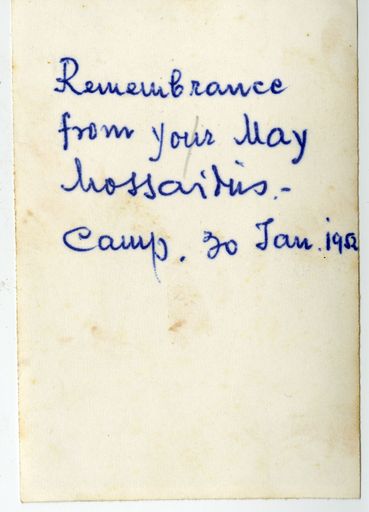 Remembrance
from your May
Mossaidùs.-
Camp, 30 Jan. 1952